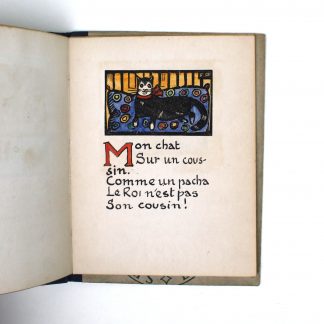 Mon chat
Sur un cous-
sin.
Comme un pacha
Le Roi n'est pas
Son cousin!